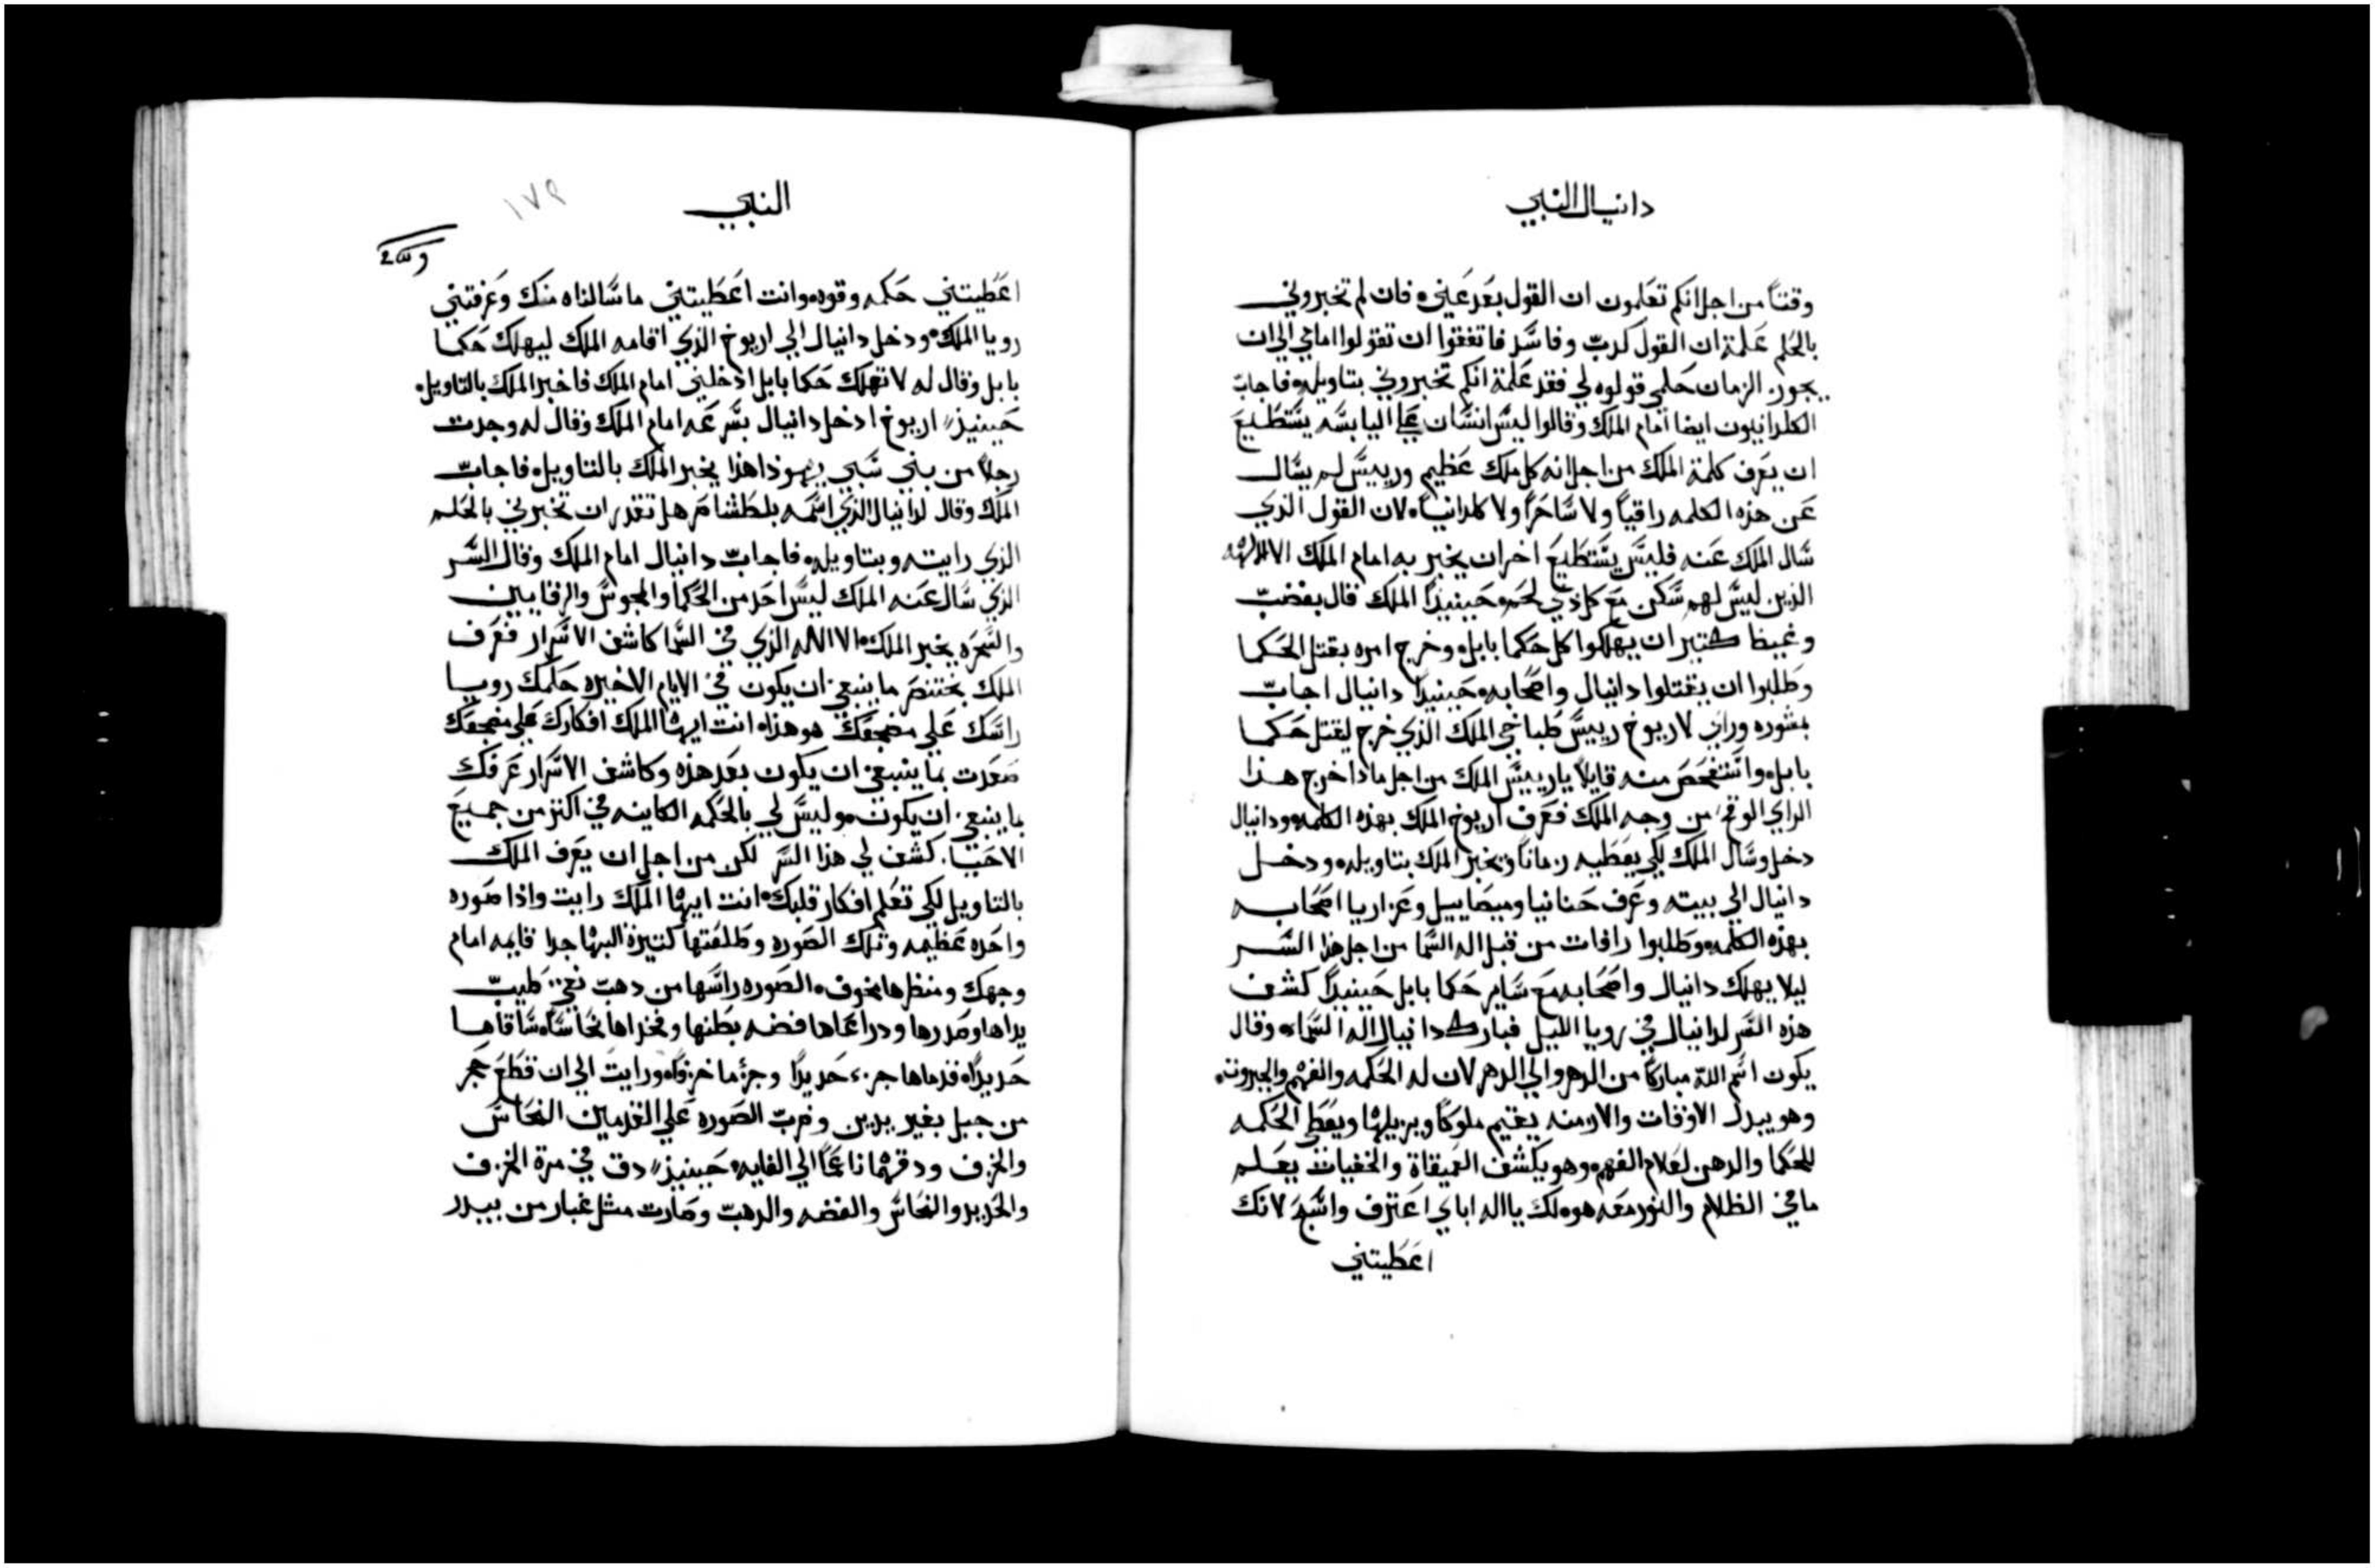 دانيال النبي
وقتاً من اجل انكم تعلمون ان القول بعد عني فان لم تخبروني
بالحلم علمة ان القول كدب وفاسد فاتفقوا ان تقولوا امامي الي ان
يجوز الزمان حلمي قولوه لي فقد علمة انكم تخبروني بتاويله فاجاب
الكلدانيون ايضا امام الملك وقالوا ليس انسان علي اليابسه يستطيع
ان يعرف كلمة الملك من اجل انه كل ملك عظيم ورييس لم يسال
عن هذه الكلمه راقياً ولا ساحراً ولا كلدانياً لان القول الذي
سال الملك عنه فليس يستطيع اخر ان يخبر به امام الملك الا الالهه
الذين ليس لهم سكن مع كل ذي لحم حينيذاً الملك قال بغضب
وغيظ كتير ان يهلكوا كل حكما بابل وخرج امره بقتل الحكما
وطلبوا ان يقتلوا دانيال واصحابه حينيذاً دانيال اجاب
بمشوره وراي لاريوخ رييس طباخي الملك الذي خرج ليقتل حكما
بابل واستفحص منه قايلاً يا رييس الملك من اجل مادا خرج هذا
الراي الوقح من وجه الملك فعرف اريوخ الملك بهذه الكلمه ودانيال
دخل وسال الملك لكي يعطيه زماناً ويخبر الملك بتاويله ودخل
دانيال الي بيته وعرف حنانيا وميصاييل وعزاريا اصحابه
بهذه الكلمه وطلبوا رافات من قبل اله السما من اجل هذا السر
ليلا يهلك دانيال واصحابه مع ساير حكما بابل حينيذاً كشف
هذه السر لدانيال في رويا الليل فبارك دانيال اله السماء وقال
يكون اسم الله مباركاً من الدهر والي الدهر لان له الحكمه والفهم والجبروت
وهو يبدل الاوقات والازمنه يقيم ملوكاً ويزيلها ويعطي الحكمه
للحكما والدهن لعلام الفهم وهو يكشف العميقاة والخفيات يعلم
ما في الظلام والنور معه هو لك يا اله اباي اعترف واسبح لانك
اعطيتني
النبي
١٧٩
اعطيتني حكمه وقوه وانت اعطيتني ما سالناه منك وعرفتني
رويا الملك ودخل دانيال الي اريوخ الذي اقامه الملك ليهلك حكما
بابل وقال له لا تهلك حكما بابل ادخلني امام الملك فاخبر الملك بالتاويل
حينيذ اريوخ ادخل دانيال بسرعه امام الملك وقال له وجدت
رجلاً من بني سبي يهوذا هذا يخبر الملك بالتاويل فاجاب
الملك وقال لدانيال الذي اسمه بلطشاصر هل تقدر ان تخبرني بالحلم
الذي رايته وبتاويله فاجاب دانيال امام الملك وقال السر
الذي سال عنه الملك ليس احد من الحكما والمجوس والرقايين
والسحره يخبر الملك الا الله الذي في السما كاشف الاسرار فعرف
الملك بختنصر ما ينبغي ان يكون في الايام الاخيره حلمك رويا
راسك علي مضجعك هو هذا انت ايها الملك افكارك علي مضجعك
صعدت بما ينبغي ان يكون بعد هذه وكاشف الاسرار عرفك
بما ينبغي ان يكون وليس لي بالحكمه الكاينه في اكثر من جميع
الاحيا كشف لي هذا السر لكن من اجل ان يعرف الملك
بالتاويل لكي تعلم افكار قلبك انت ايها الملك رايت واذا صوره
واحده عظيمه وتلك الصوره وطلعتها كتيرة البها جدا قايمه امام
وجهك ومنظرها مخوف الصوره راسها من دهب نقي طيب
يداها وصدرها ودراعاها فضه بطنها وفخداها نحاساً ساقاها
حديداً قدماها جزء حديداً وجزء ما خزفاً ورايت الي ان قطع حجر
من جبل بغير يدين وضرب الصوره علي القدمين النحاس
والخزف ودقهما ناعماً الي الغايه حينيذ دق في مرة الخزف
والحديد والنحاس والفضه والدهب وصارت مثل غبار من بيدر